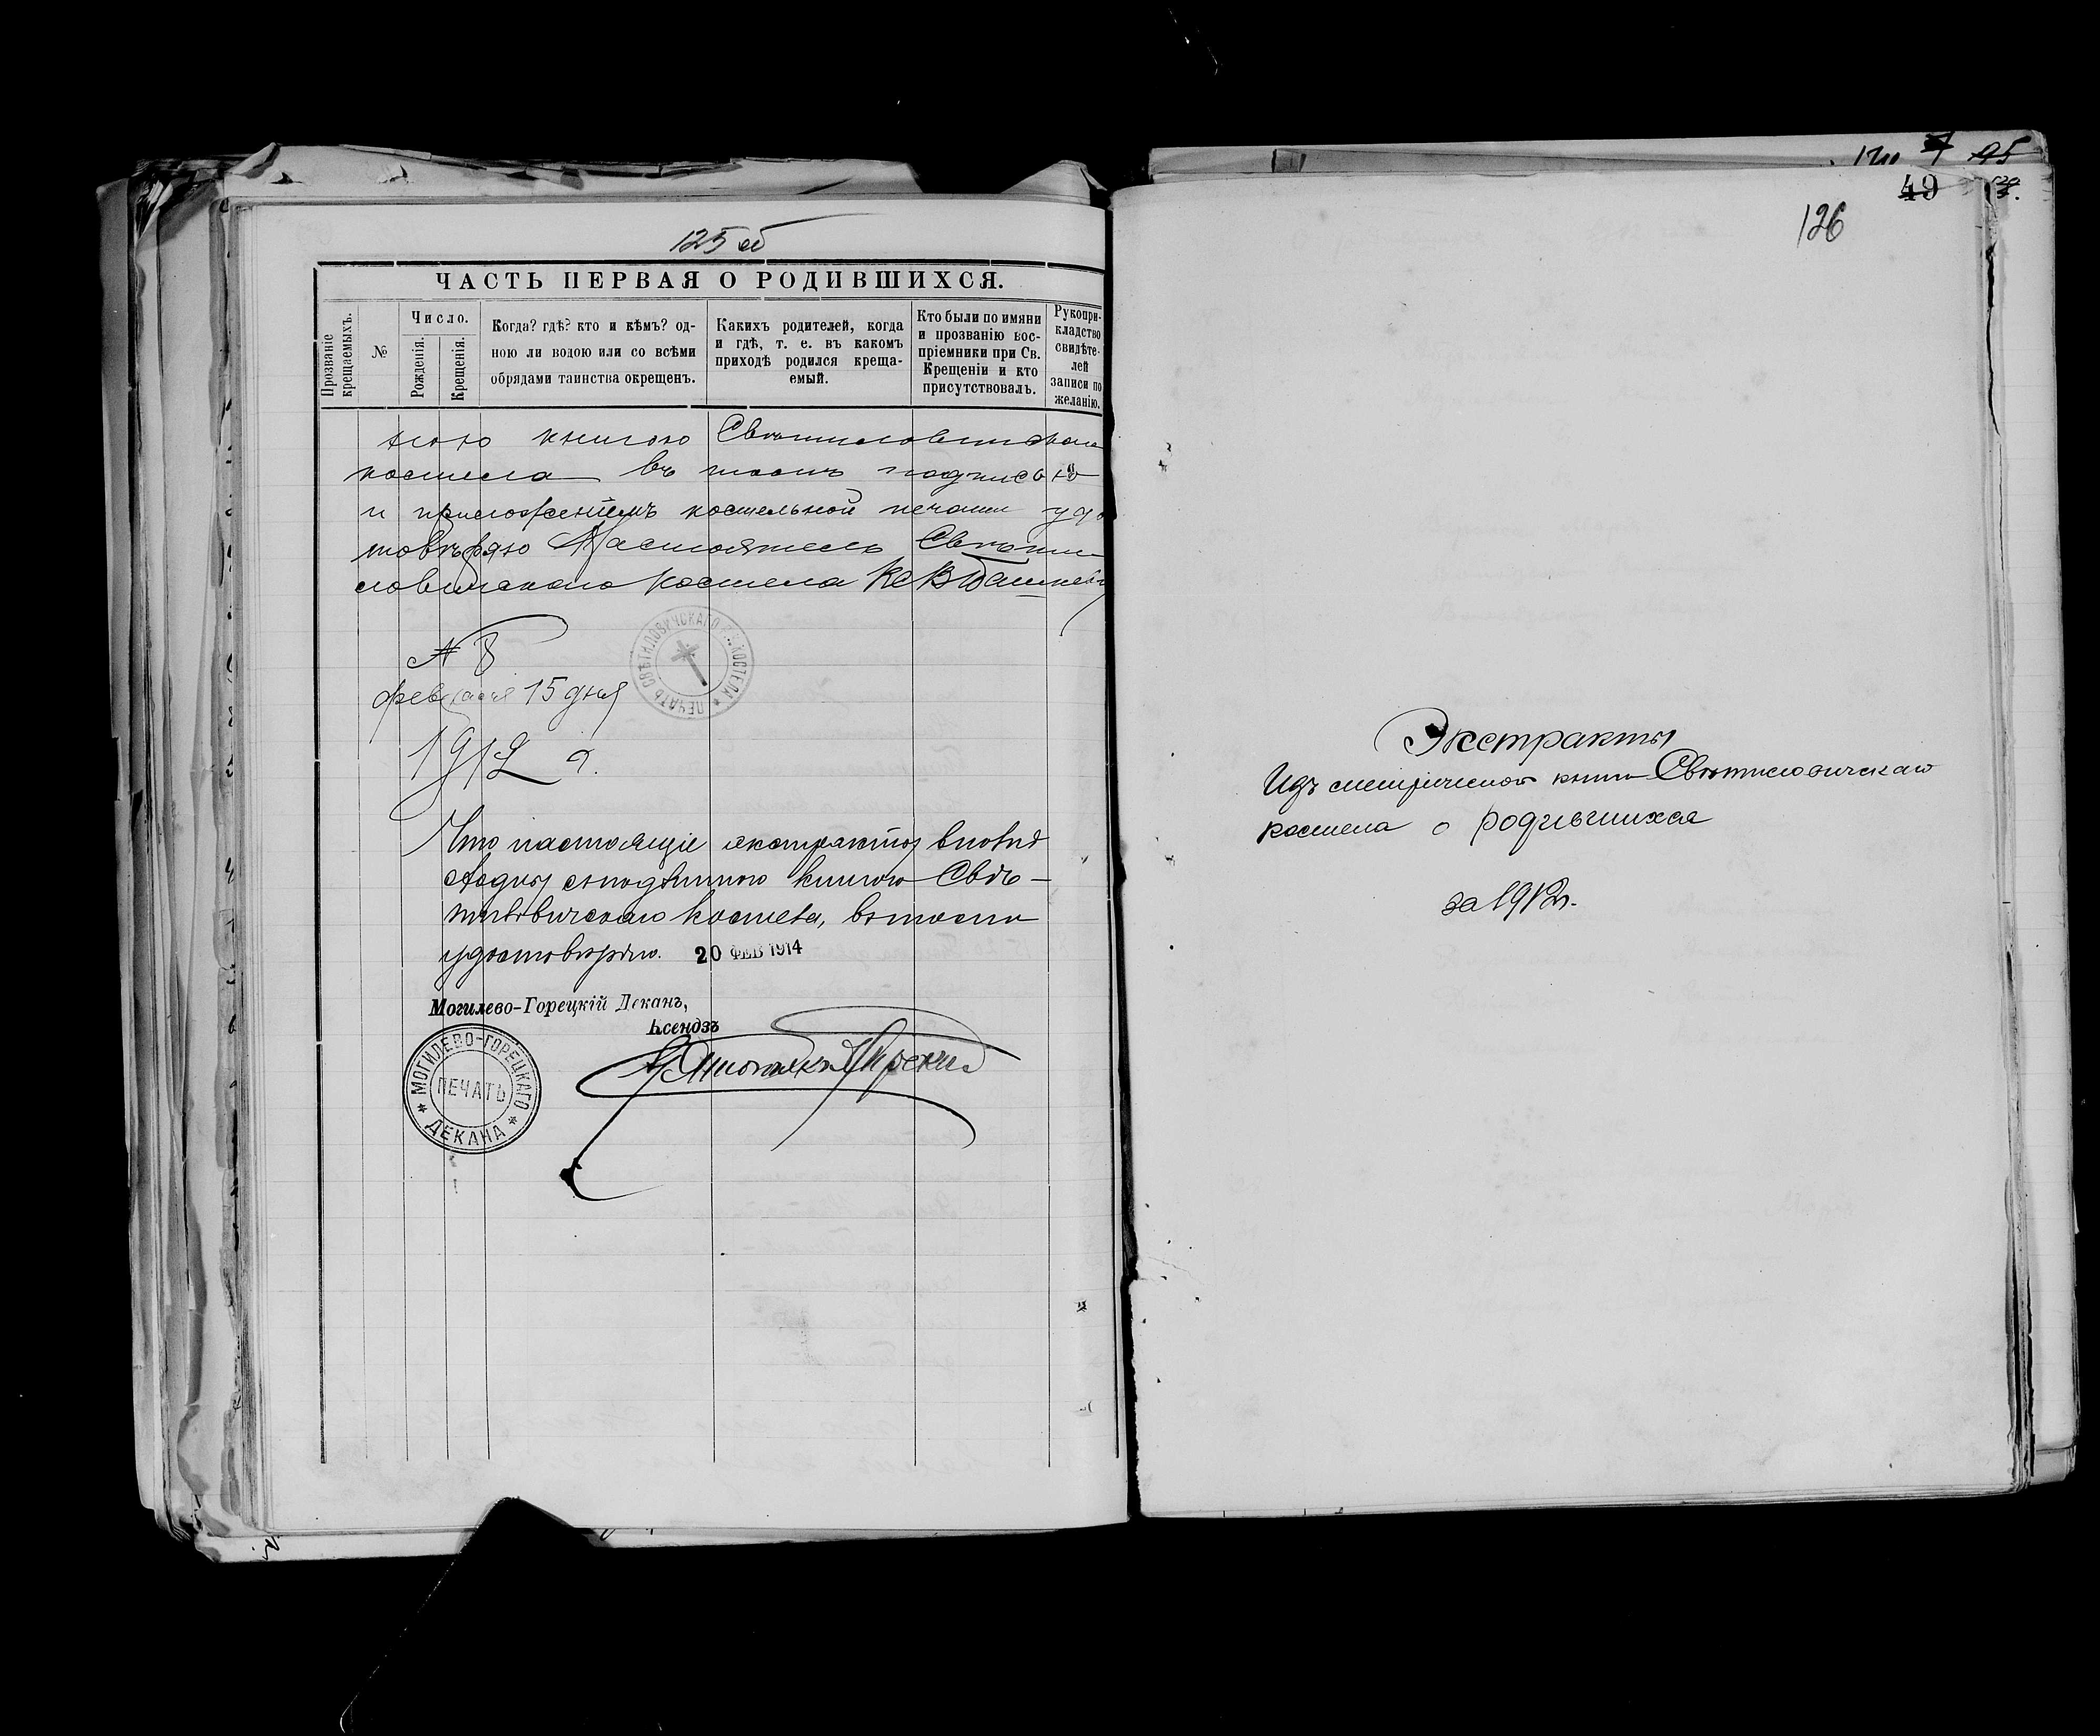 125 об
ЧАСТЬ ПЕРВАЯ О РОДИВШИХСЯ.
Прозваніе крещаемыхъ.
№
Число.
Рожденія.
Крещенія.
Когда? гдѣ? кто и кѣмъ? од-
ною ли водою или со всѣми
обрядами таинства окрещенъ.
Какихъ родителей, когда
и гдѣ, т. е. въ какомъ
приходѣ родился креща-
емый.
Кто были по имяни
и прозванію вос-
пріемники при Св.
Крещеніи и кто
присутствовалъ.
Рукопри-
кладство
свидѣте-
лей
записи по
желанію.
ною книгою Свѣтиловичскаго
костела въ томъ подписью
и приложеніемъ костельной печати удо
товѣряю Настоятель Свѣти
ловичскаго костела Кс В
ПЕЧАТЬ СВѢТИЛОВИЧСКАГО КОСТЕЛА
№ 8
февраля 15 дня
1912 г.
Что настоящіе экстракты вполнѣ
сходны съ подлинною книгою Свѣ-
тиловичскаго костела, въ томъ
удостовѣряю. 20 ФЕВ 1914
Могилево-Горецкій Деканъ,
Ксендзъ
МОГИЛЕВО-ГОРЕЦКАГО ДЕКАНА
ПЕЧАТЬ
95
49
126
Экстракты
Изъ метрической книги Свѣтиловичскаго
костела о родившихся
за 1912 г.